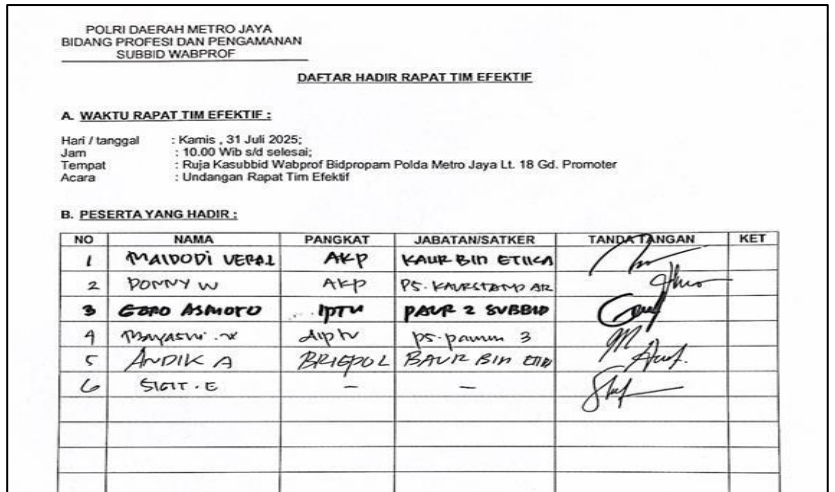 POLRI DAERAH METRO JAYA
BIDANG PROFESI DAN PENGAMANAN
SUBBID WABPROF
DAFTAR HADIR RAPAT TIM EFEKTIF
A. WAKTU RAPAT TIM EFEKTIF :
Hari / tanggal : Kamis , 31 Juli 2025;
Jam : 10.00 Wib s/d selesai;
Tempat : Ruja Kasubbid Wabprof Bidpropam Polda Metro Jaya Lt. 18 Gd. Promoter
Acara : Undangan Rapat Tim Efektif
B. PESERTA YANG HADIR :
NO NAMA PANGKAT JABATAN/SATKER TANDA TANGAN KET
1 MAIDODI AKP KAUR BIN ETIKA
2 DONNY W AKP PS. AR
3 ASMORO IPTU PAUR 2 SUBBID
4 AIPTU PS. 3
5 ANDIK A BRIGPOL BAUR BIN
6 SIGIT . E - -